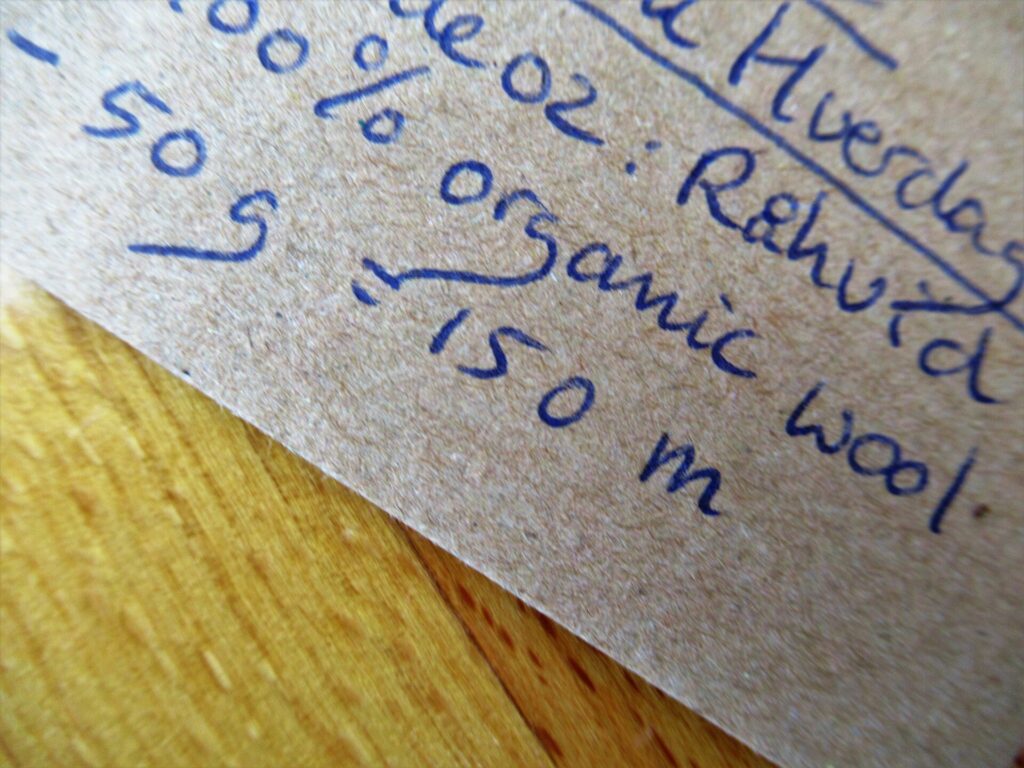 Hverdag
02: Råhvid
100% organic wool.
- 50 g : 150 m